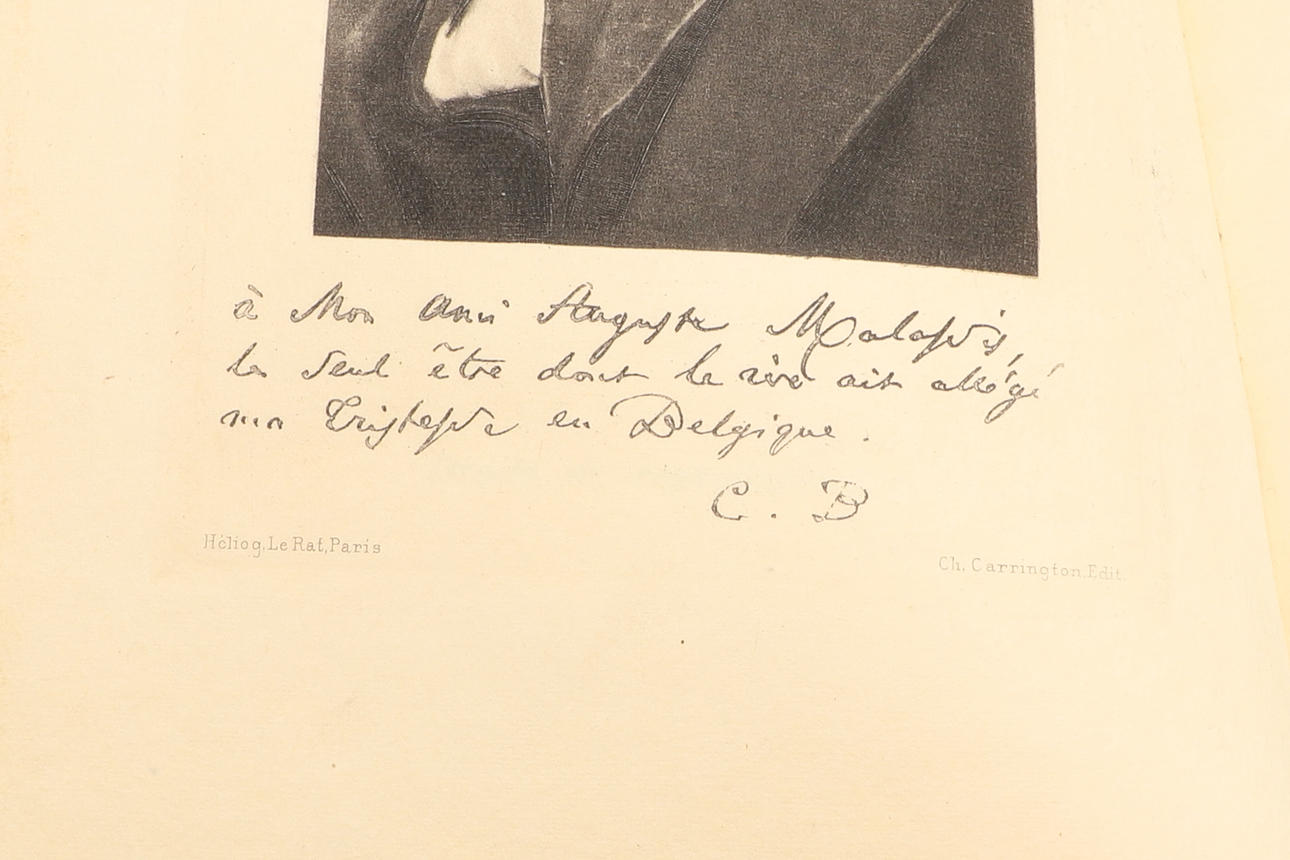 à Mon ami Auguste Malassis,
le seul être dont le rire ait allégé
ma tristesse en Belgique.
C. B
Héliog. Le Rat, Paris
Ch. Carrington. Edit.